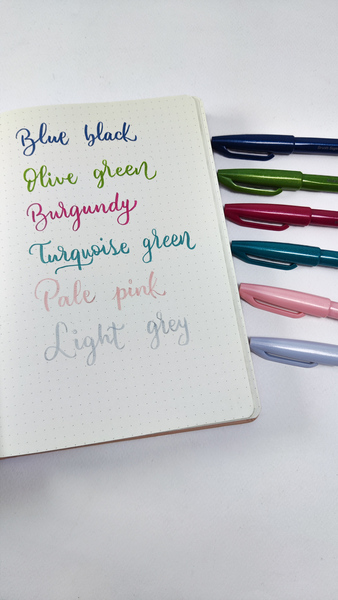 Blue black
Olive green
Burgundy
Turquoise green
Pale pink
Light grey